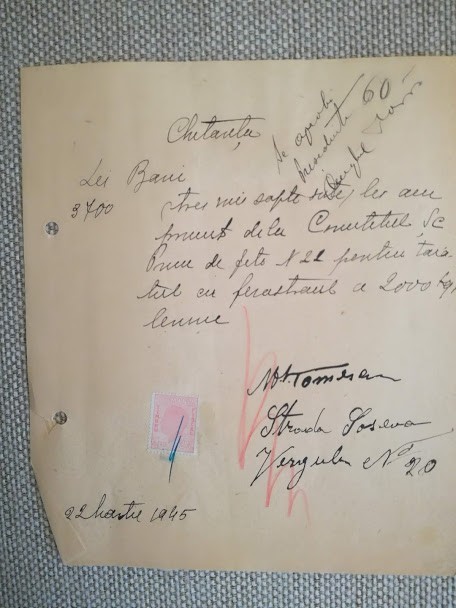 Se aprobă
60
Chitanța
Lei Bani
3700 trei mii șapte sute, lei am
primit dela Comitetul Sc
Prim de fete N 22 pentru tăia
tul cu ferăstrăul a 2000 kgr
lemne
Tomescu
Strada Șoseua
Vergului No 20
22 Martie 1945